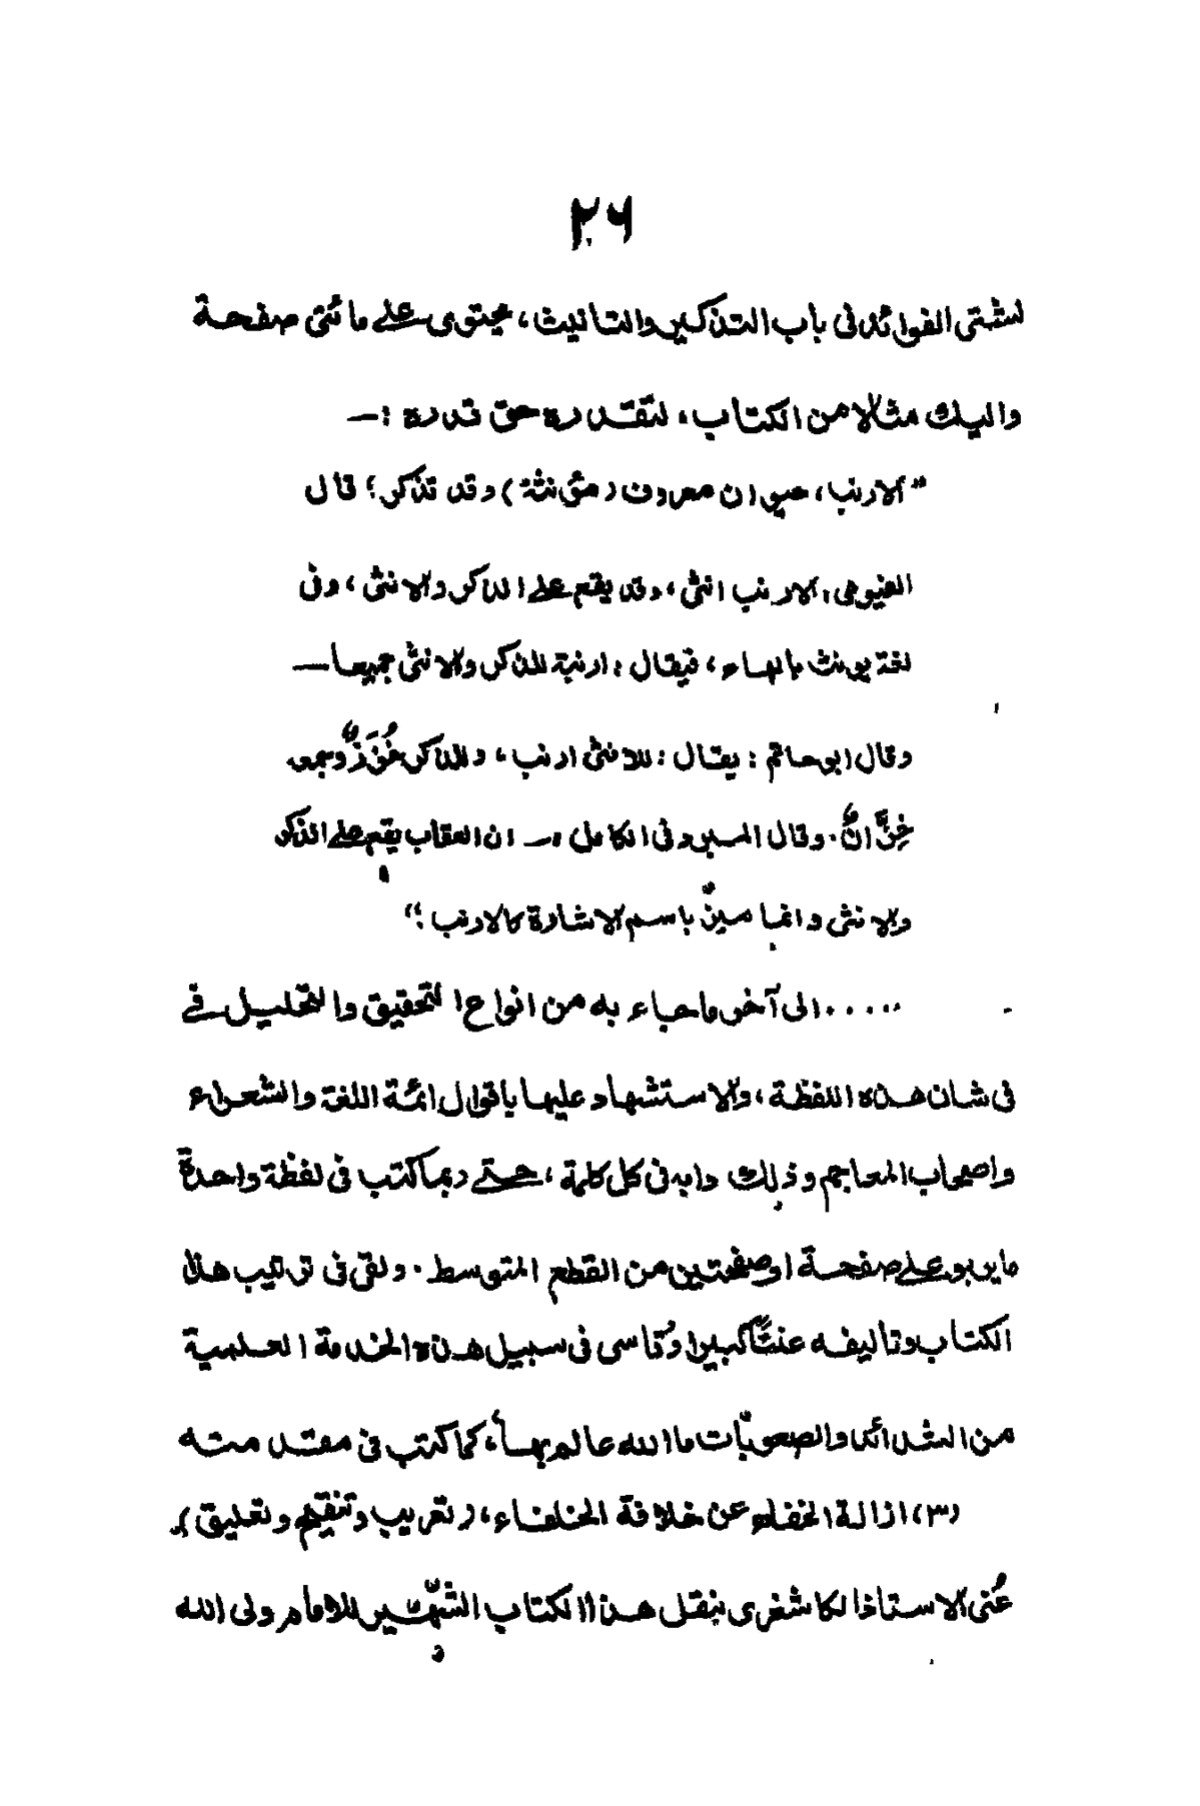 ٢٦
لشتى الفوائد فى باب التذكير والتانيث، يحتوى على مائتى صفحة
واليك مثالا من الكتاب، لتقدره حق قدره :—
"الارنب، حيوان معروف (مؤنثة) وقد تذكر؛ قال
الفيومى: الارنب انثى، وقد يقع على الذكر والانثى، وفى
لغة يونث بالهاء، فيقال: ارنبة للذكر والانثى جميعا—
وقال ابو حاتم : يقال : للانثى ارنب، وللذكر خُزَزٌ وجمعه
خِزَّانٌ. وقال المبرد فى الكامل :— ان العقاب يقع على الذكر
والانثى وانما ميزّ باسم الاشارة كالارنب ؛"
..... الى آخر ما جاء به من انواع التحقيق والتحليل فى
فى شان هذه اللفظة، والاستشهاد عليها باقوال ائمة اللغة والشعراء
واصحاب المعاجم وذلك دابه فى كل كلمة، حتى ربما كتب فى لفظة واحدة
ما يربو على صفحة او صفحتين من القطع المتوسط. ولقى فى ترتيب هذا
الكتاب وتاليفه عنتًا كبيرا وقاسى فى سبيل هذه الخدمة العلمية
من الشدائد والصعوبات ما الله عالم بها، كما كتب فى مقدمته
(٣) ازالة الخفاء عن خلافة الخلفاء، (تعريب وتنقيح وتعليق).
عُنى الاستاذ الكاشغرى بنقل هذا الكتاب الشهير للامام ولى الله